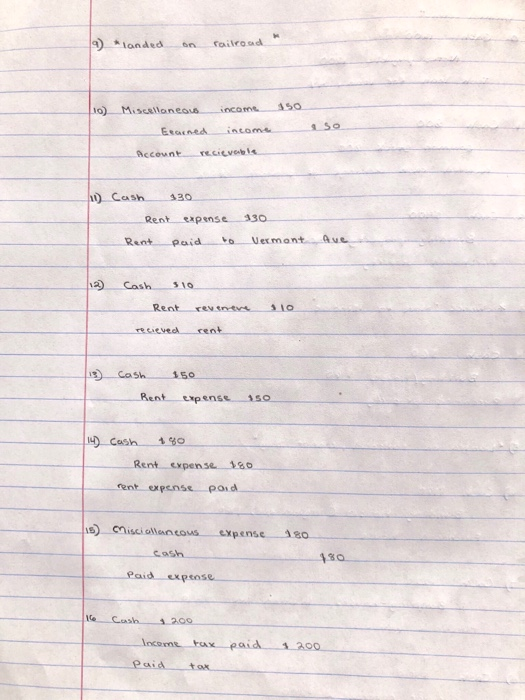 9) "landed on railroad"
10) Miscellaneous income $50
Eearned income $50
Account recievable
11) Cash $30
Rent expense $30
Rent paid to Vermont Ave
12) Cash $10
Rent reveneve $10
recieved rent
13) Cash $50
Rent expense $50
14) Cash $80
Rent expense $80
rent expense paid
15) Misciallaneous expense $80
cash $80
Paid expense
16 Cash $200
Income tax paid $200
Paid tax